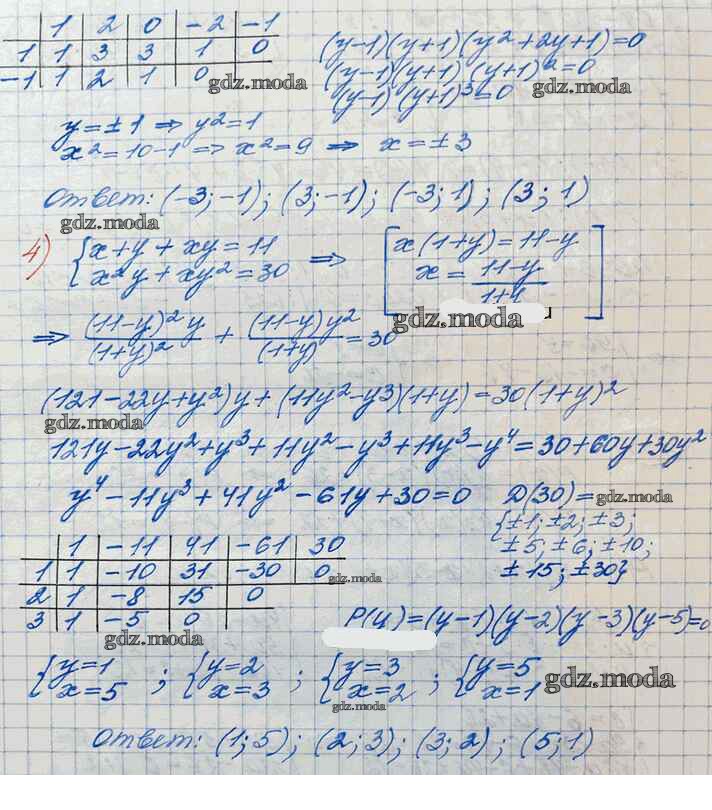 1 2 0 -2 -1
1 1 3 3 1 0
-1 1 2 1 0
gdz.moda
(y-1)(y+1)(y²+2y+1)=0
(y-1)(y+1)(y+1)²=0
gdz.moda
(y-1)(y+1)³=0
y=±1 ⇒ y²=1
x²=10-1 ⇒ x²=9 ⇒ x=±3
Ответ: (-3;-1); (3;-1); (-3;1); (3;1)
gdz.moda
4) {x+y+xy=11 ⇒ [x(1+y)=11-y]
{x²y+xy²=30 [x=(11-y)/(1+y)]
gdz.moda
⇒ (11-y)²y/(1+y)² + (11-y)y²/(1+y) = 30
(121-22y+y²)y+(11y²-y3)(1+y)=30(1+y)²
gdz.moda
121y-22y²+y³+11y²-y³+11y³-y⁴=30+60y+30y²
y⁴-11y³+41y²-61y+30=0
D(30)=
gdz.moda
{±1;±2;±3;
±5;±6;±10;
±15;±30}
1 -11 41 -61 30
1 1 -10 31 -30 0
gdz.moda
2 1 -8 15 0
3 1 -5 0
gdz.moda
P(y)=(y-1)(y-2)(y-3)(y-5)=0
{y=1 ; {y=2 ; {y=3 ; {y=5
x=5 x=3 x=2 x=1
gdz.moda
gdz.moda
Ответ: (1;5); (2;3); (3;2); (5;1)